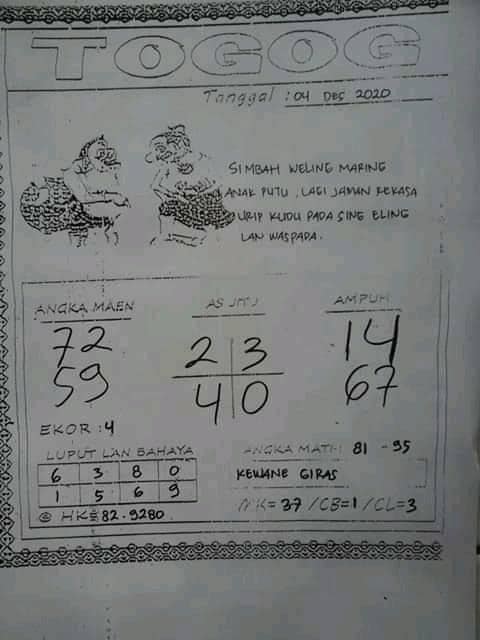 TOGOG
Tanggal : 04 Des 2020
SIMBAH WELING MARING
ANAK PUTU, LAGI JAMAN REKASA
URIP KUDU PADA SING ELING
LAN WASPADA.
ANGKA MAEN
72
59
EKOR : 4
AS JITU
2 3
4 0
AMPUH
14
67
LUPUT LAN BAHAYA
6 3 8 0
1 5 6 9
ANGKA MATI : 81 - 95
KEWANE GIRAS
MK= 37 / CB=1 / CL=3
HK= 82 - 9280